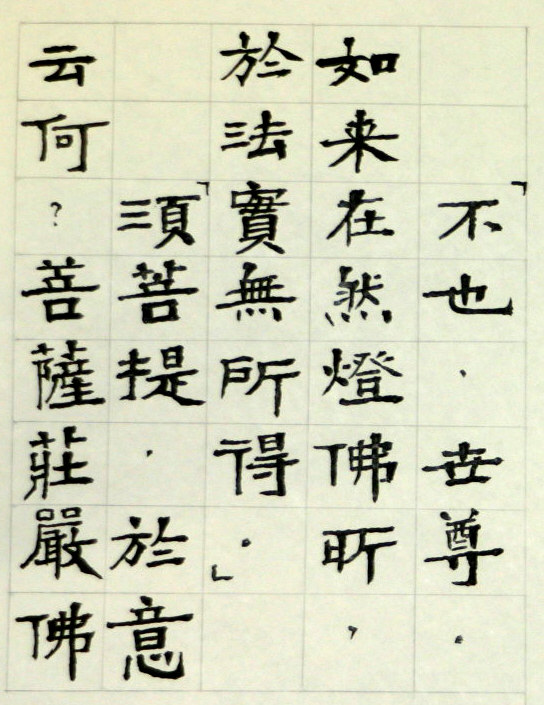 「不也,世尊.
如来在然燈佛所,
於法實無所得.」
「須菩提,於意
云何?菩薩莊嚴佛